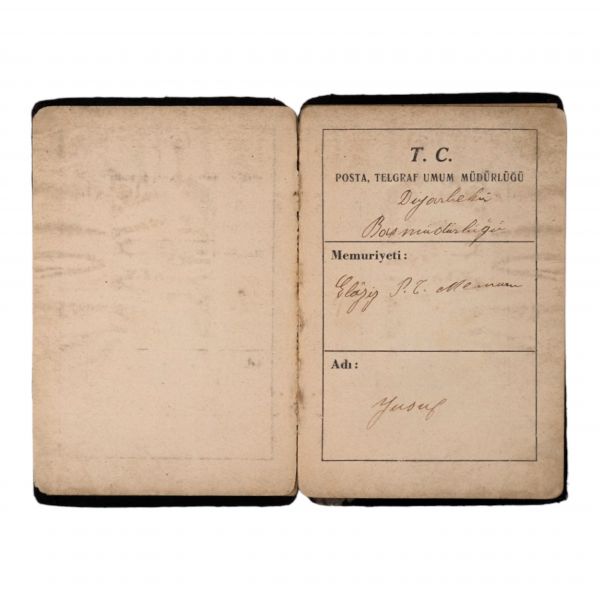 T. C.
POSTA, TELGRAF UMUM MÜDÜRLÜĞÜ
Diyarbekir
Başmüdürlüğü
Memuriyeti :
Elâziz P. T. Memuru
Adı :
Yusuf